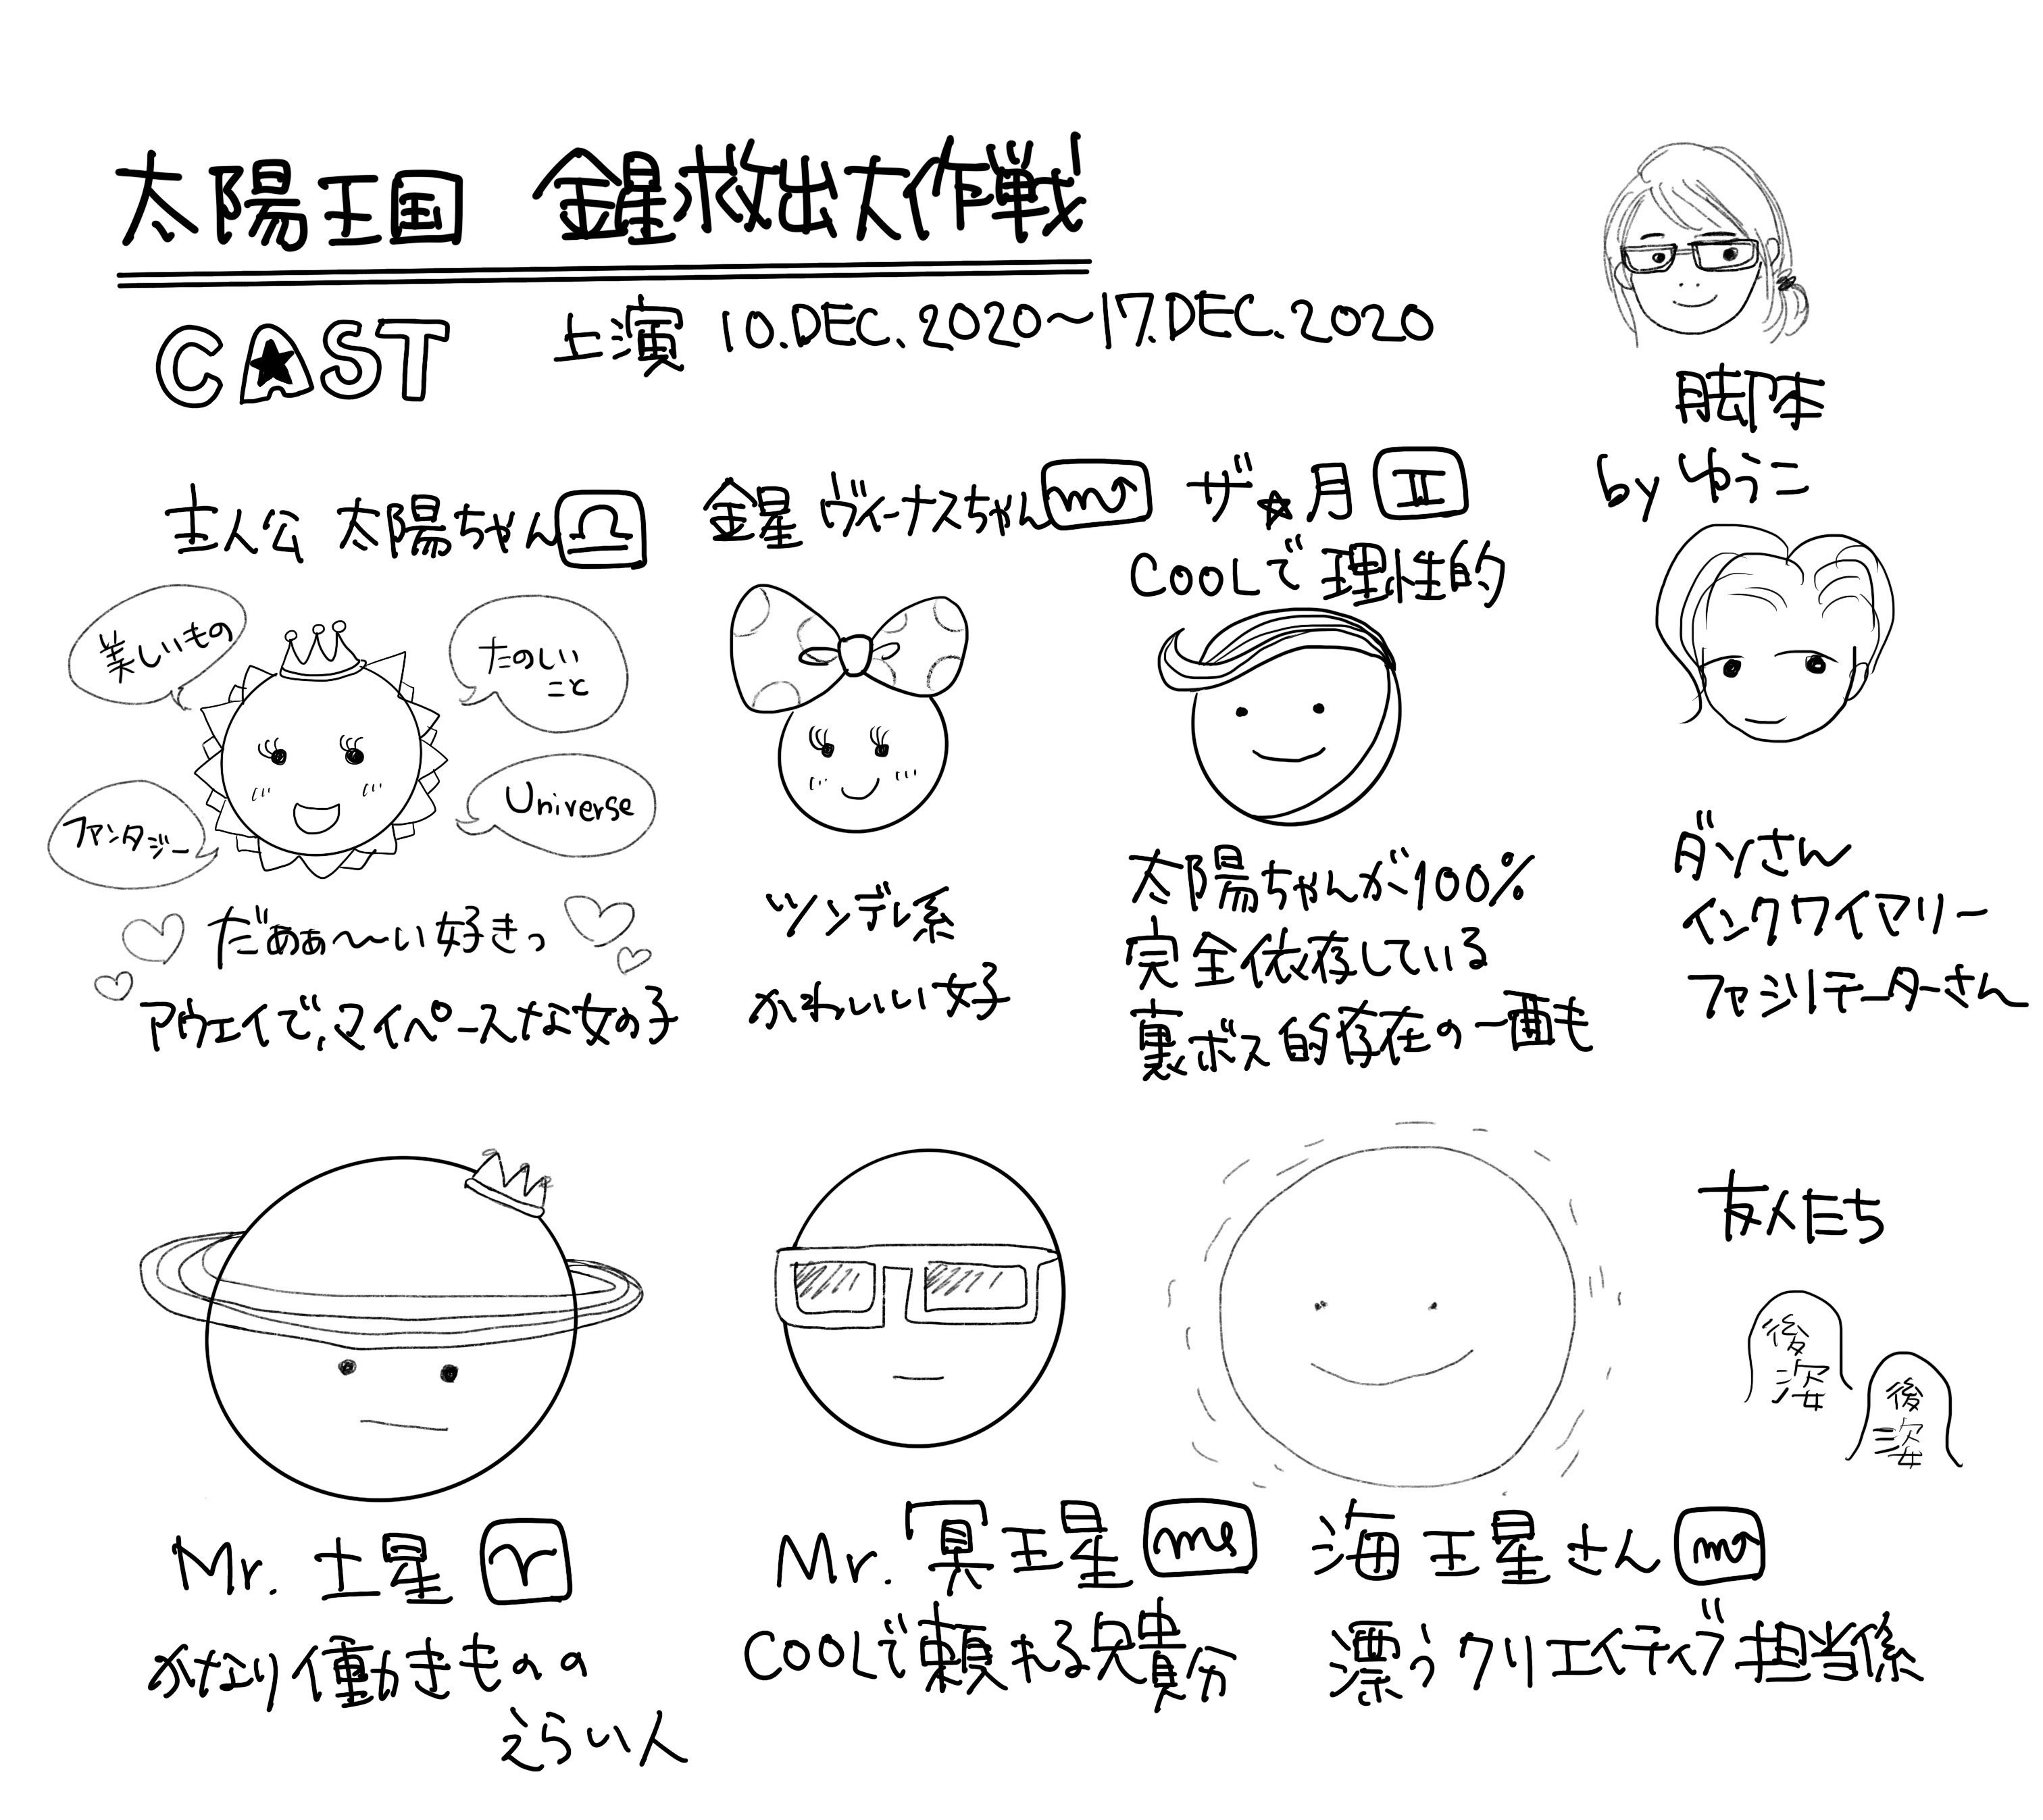 太陽王国 金星救出大作戦
CAST 上演 10.DEC.2020〜17.DEC.2020
脚本
by ゆうこ
主人公 太陽ちゃん ♎
美しいもの
たのしい
こと
ファンタジー
Universe
だぁぁ〜〜い好きっ
アウェイで、マイペースな女の子
金星 ヴィーナスちゃん ♏
ツンデレ系
かわいい女子
ザ★月 ♊
COOLで理性的
太陽ちゃんが100%
完全依存している
裏ボス的存在の一面も
ダンさん
インクワイアリー
ファシリテーターさん
Mr. 土星 ♈
かなり働きものの
えらい人
Mr. 冥王星
COOLで頼れる兄貴分
海王星さん ♏
漂うクリエイティブ担当係
友人たち
後
姿
後
姿